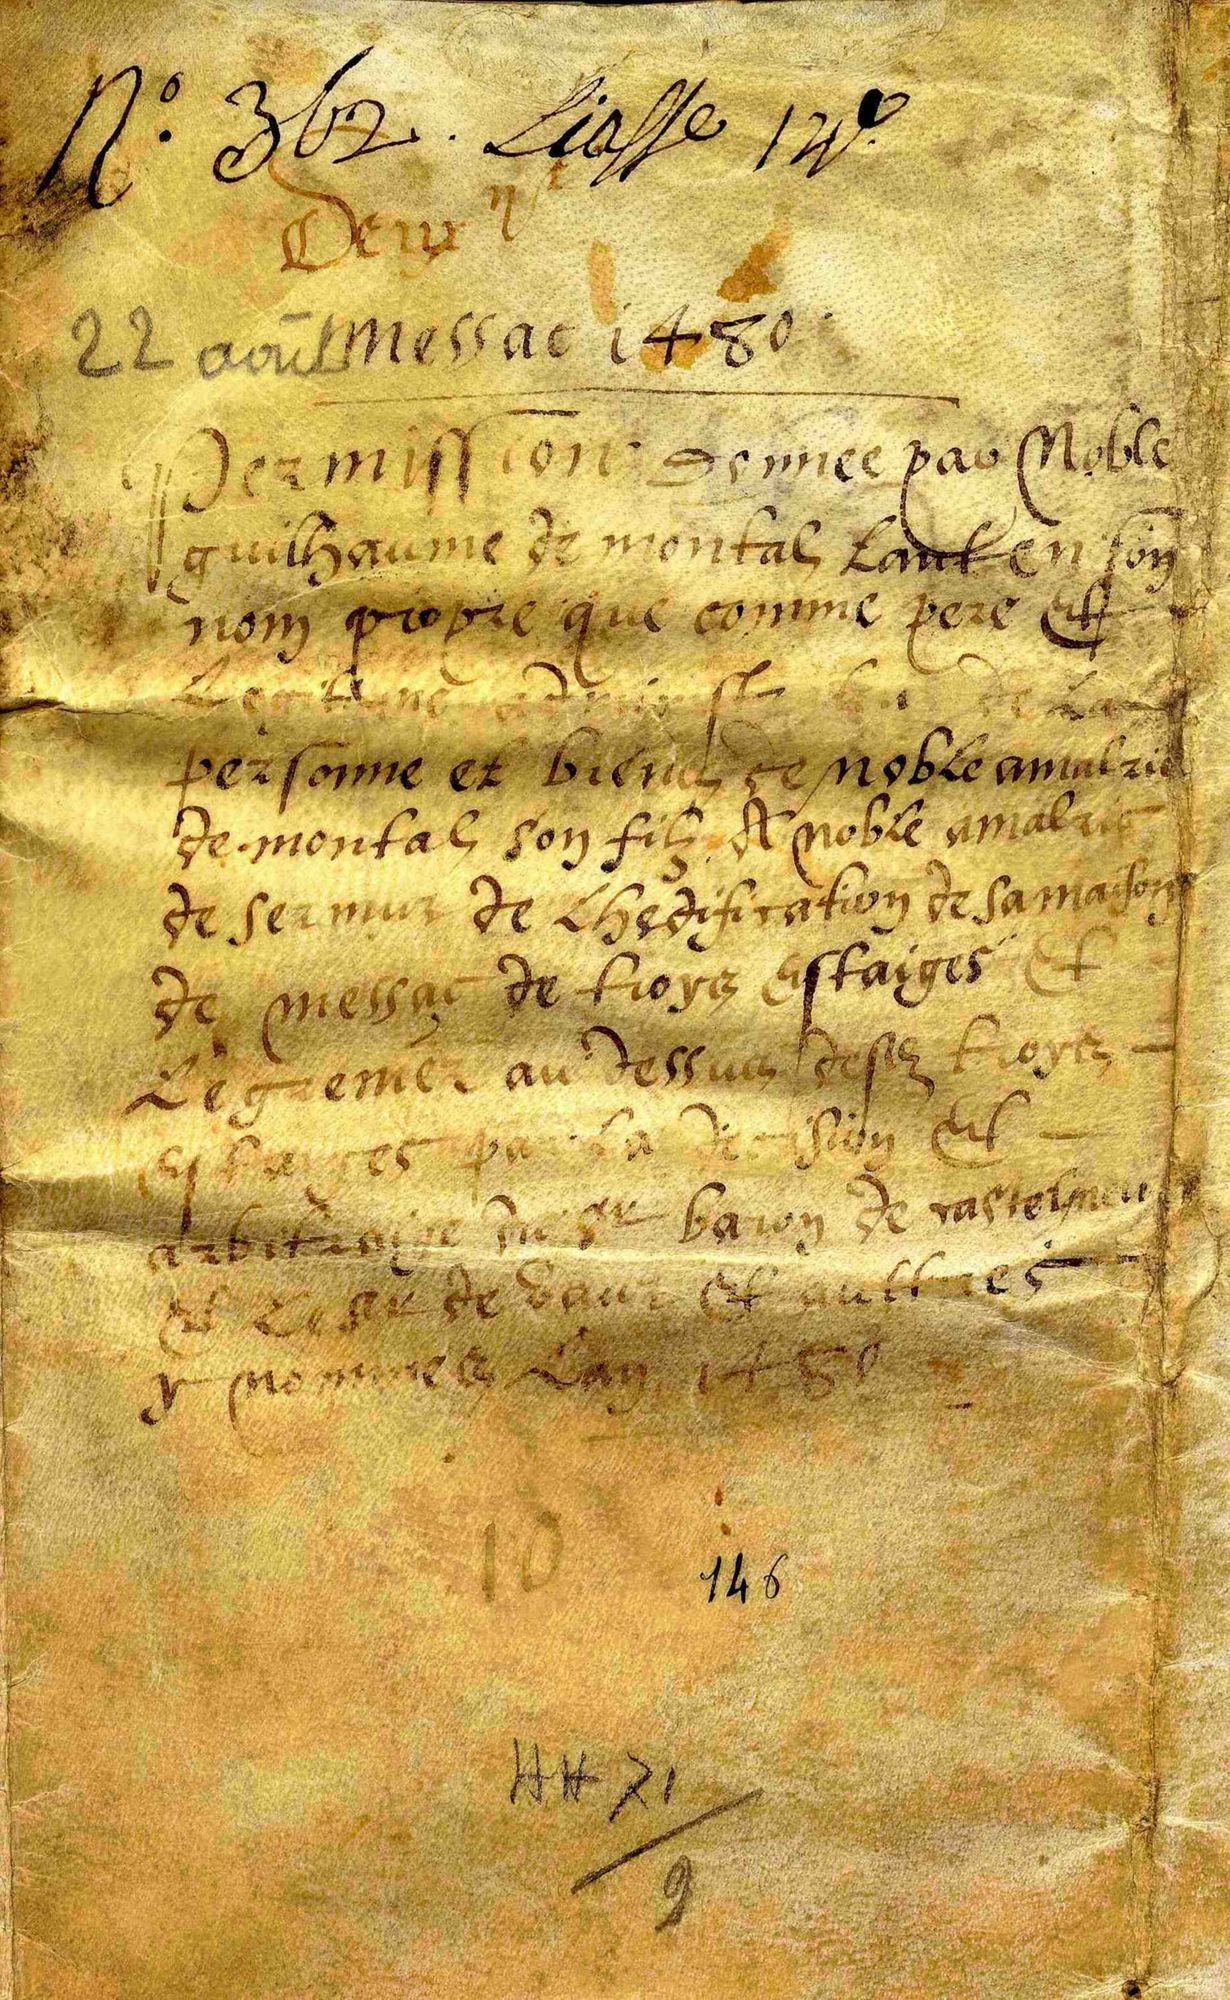 N.º 362. Liasse 12e.
Deux
22 août Messac 1480
Permission donnee par Noble
guilhaume de montal tant en son
nom propre que comme pere et
Legitime de La
personne et biens de noble amalric
de montal son filz A noble amalric
de sermur de Lhedification de sa maison
de messac de troys estaiges et
Le grenier au dessus desd troys
estaiges par La decision et
arbitraige du sr baron de castelnau
et Le sr de et aultres
y nommes Lan 1480
10
146
HH 71
9